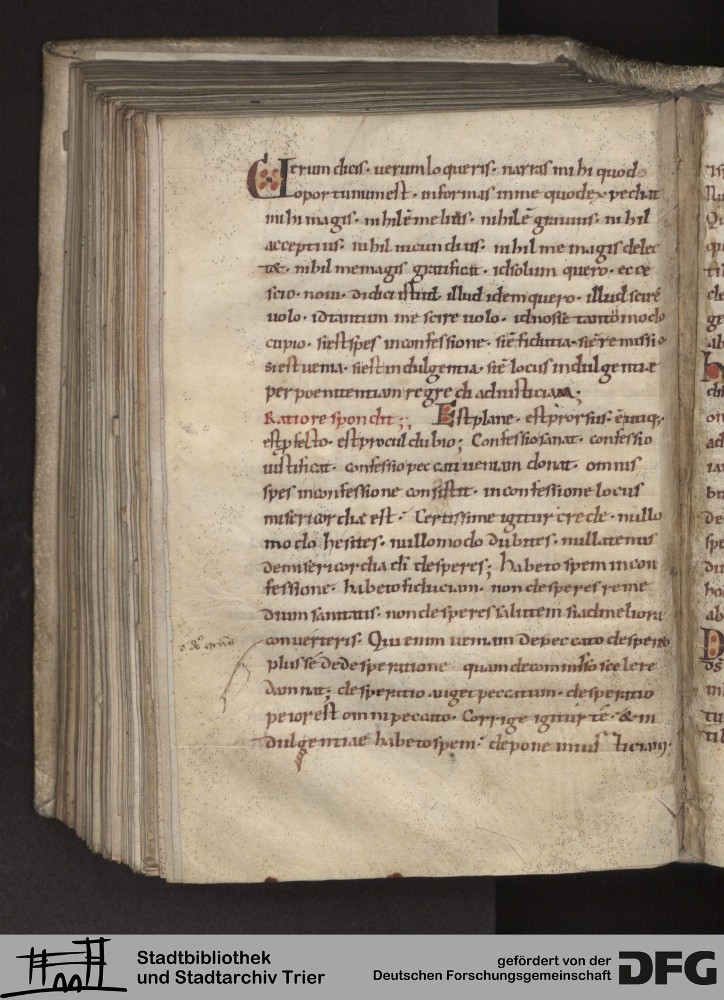 Uerum dicis· uerum loqueris· narras mihi quod
oportunum est· informas in me quod expediat
mihi magis· nihil ē melius· nihil ē gratius· nihil
acceptius· nihil iucundius· nihil me magis delec
tat· nihil me magis gratificat· id solum quero· ecce
scio· noui· didici illud idem quero· illud scire
uolo· id tantum me scire uolo· id nosse tantōmodo
cupio· si est spes in confessione· si ē fiducia· si ē remissio·
si est uenia· si est indulgentia· si ē locus indulgentiæ
per poenitentiam regredi ad iusticiam;
Ratio respondit;; Est plane· est prorsus· ē utiq;·
est pfecto· est procul dubio; Confessio sanat· confessio
iustificat· confessio peccati ueniam donat· omnis
spes in confessione consistit· in confessione locus
misericordiæ est· Certissime igitur crede· nullo
modo hesites· nullomodo dubites· nullatenus
de misericordia dī desperes; habeto spem in con
fessione· habeto fiduciam· non desperes reme
dium sanitatis· non desperes salutem si ad meliora
conuerteris· Qui enim ueniam de peccato desperat
plus sē de desperatione quam de commisso scelere
damnat; desperatio auget peccatum· desperatio
peior est omni peccato· Corrige igitur tē· & in
dulgentiae habeto spem· depone iniusticiam·
Stadtbibliothek
und Stadtarchiv Trier
gefördert von der
Deutschen Forschungsgemeinschaft
DFG